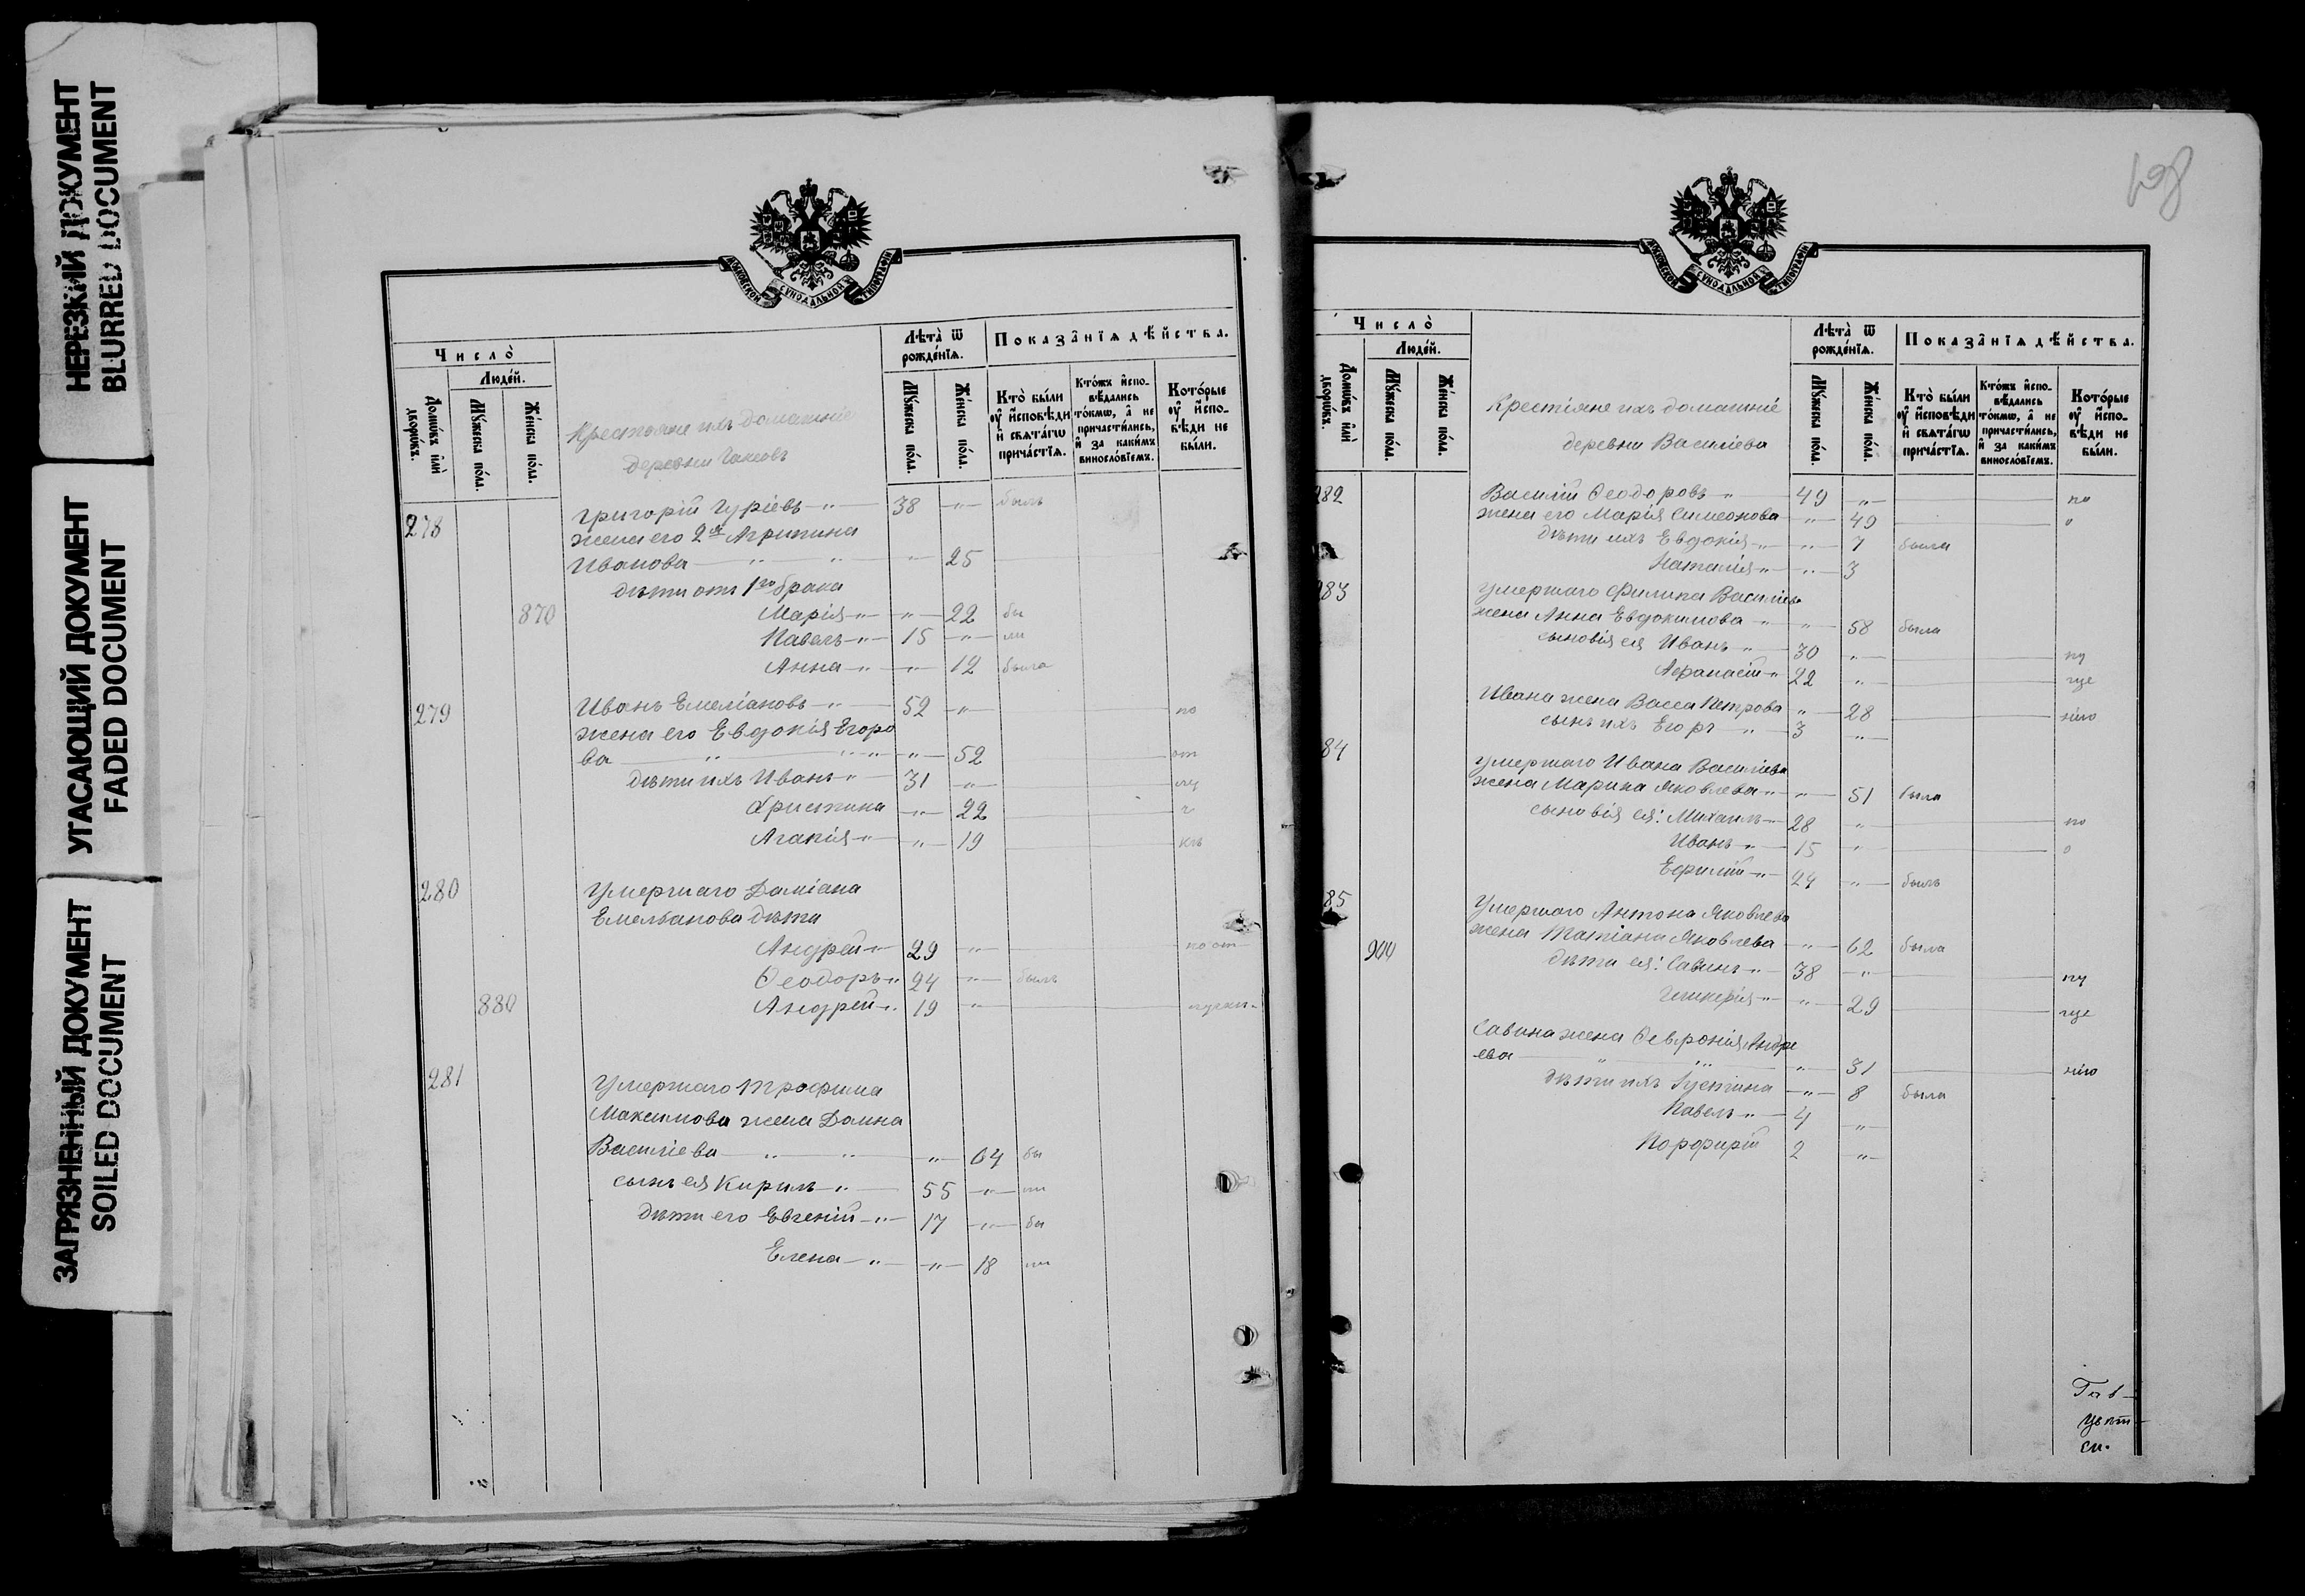 НЕРЕЗКИЙ ДОКУМЕНТ
BLURRED DOCUMENT
УГАСАЮЩИЙ ДОКУМЕНТ
FADED DOCUMENT
ЗАГРЯЗНЕННЫЙ ДОКУМЕНТ
SOILED DOCUMENT
МОСКОВСКОЙ СѴНОДАЛЬНОЙ ТИПОГРАФІИ
Число̀
Людéй.
Домѡ́въ и҆лѝ дворѡ́въ.
Мꙋ́жеска пóла.
Жéнска пóла.
Лѣ́та ѿ рождéнїѧ.
Мꙋ́жеска пóла.
Жéнска пóла.
Показа̑нїѧ дѣ́йства.
Кто̀ бы́ли ᲂу҆ и҆сповѣди и҆ свѧта́гѡ прича́стїѧ.
Кто́жъ и҆спо-вѣдались то́кмѡ, а҆ не причасти́лись, и҆ за каки́мъ винослóвїемъ.
Кото́рые ᲂу҆ и҆спо-вѣди не бы́ли.
Крестьяне ихъ домашніе
деревни
278 Григорій Гуріевъ 38 былъ
жена его 2я Агрипина
Иванова 25
дѣти отъ 1го брака
870 Марія 22 бы
Павелъ 15 ли
Анна 12 была
279 Иванъ Емеліановъ 52 по
жена его Евдокія Егоро
ва 52 от
дѣти ихъ Иванъ 31 лу
Христина 22 ч
Агапія 19 кѣ
280 Умершаго Даміана
Емельанова дѣти
Андрей 29 по от
Ѳеодоръ 24 былъ
880 Андрей 19
281 Умершаго Трофима
Максимова жена Домна
Василіева 64 бы
сынъ ея Кирилъ 55 ли
дѣти его Евгеній 17 бы
Елена 18 ли
198
МОСКОВСКОЙ СѴНОДАЛЬНОЙ ТИПОГРАФІИ
Число̀
Людéй.
Домѡ́въ и҆лѝ дворѡ́въ.
Мꙋ́жеска пóла.
Жéнска пóла.
Лѣ́та ѿ рождéнїѧ.
Мꙋ́жеска пóла.
Жéнска пóла.
Показа̑нїѧ дѣ́йства.
Кто̀ бы́ли ᲂу҆ и҆сповѣди и҆ свѧта́гѡ прича́стїѧ.
Кто́жъ и҆спо-вѣдались то́кмѡ, а҆ не причасти́лись, и҆ за каки́мъ винослóвїемъ.
Кото́рые ᲂу҆ и҆спо-вѣди не бы́ли.
Крестіяне ихъ домашніе
деревни Василіева
282 Василій Ѳеодоровъ 49 по
жена его Марія Симеонова 49 о
дѣти ихъ Евдокія 7 была
Наталія 3
83 Умершаго Филипа Василіева
жена Анна Евдокимова 58 была
сыновія ея Иванъ 30 пу
Афанасій 22 ще
Ивана жена Васса Петрова 28 нію
сынъ ихъ Егоръ 3
84 Умершаго Ивана Василіева
жена Марина Яковлева 51 была
сыновія ея: Михаилъ 28 по
Иванъ 15 о
Ефимій 24 былъ
85 Умершаго Антона Яковлева
жена Татіана Яковлева 62 была
900 дѣти ея: Савинъ 38 пу
Гликерія 29 ще
Савина жена Ѳеvронія Андре
ева 31 нію
дѣти ихъ Іустина 8 была
Павелъ 4
Порфирій 2